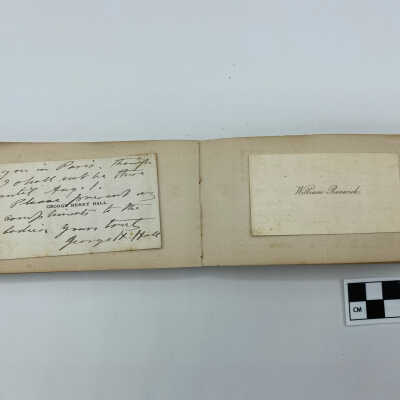 you in Paris, though
I shall not be there
until Aug. 1.
Please present my
GEORGE HENRY HALL
compliments to the
ladies. Yours truly
George H. Hall
William
CM